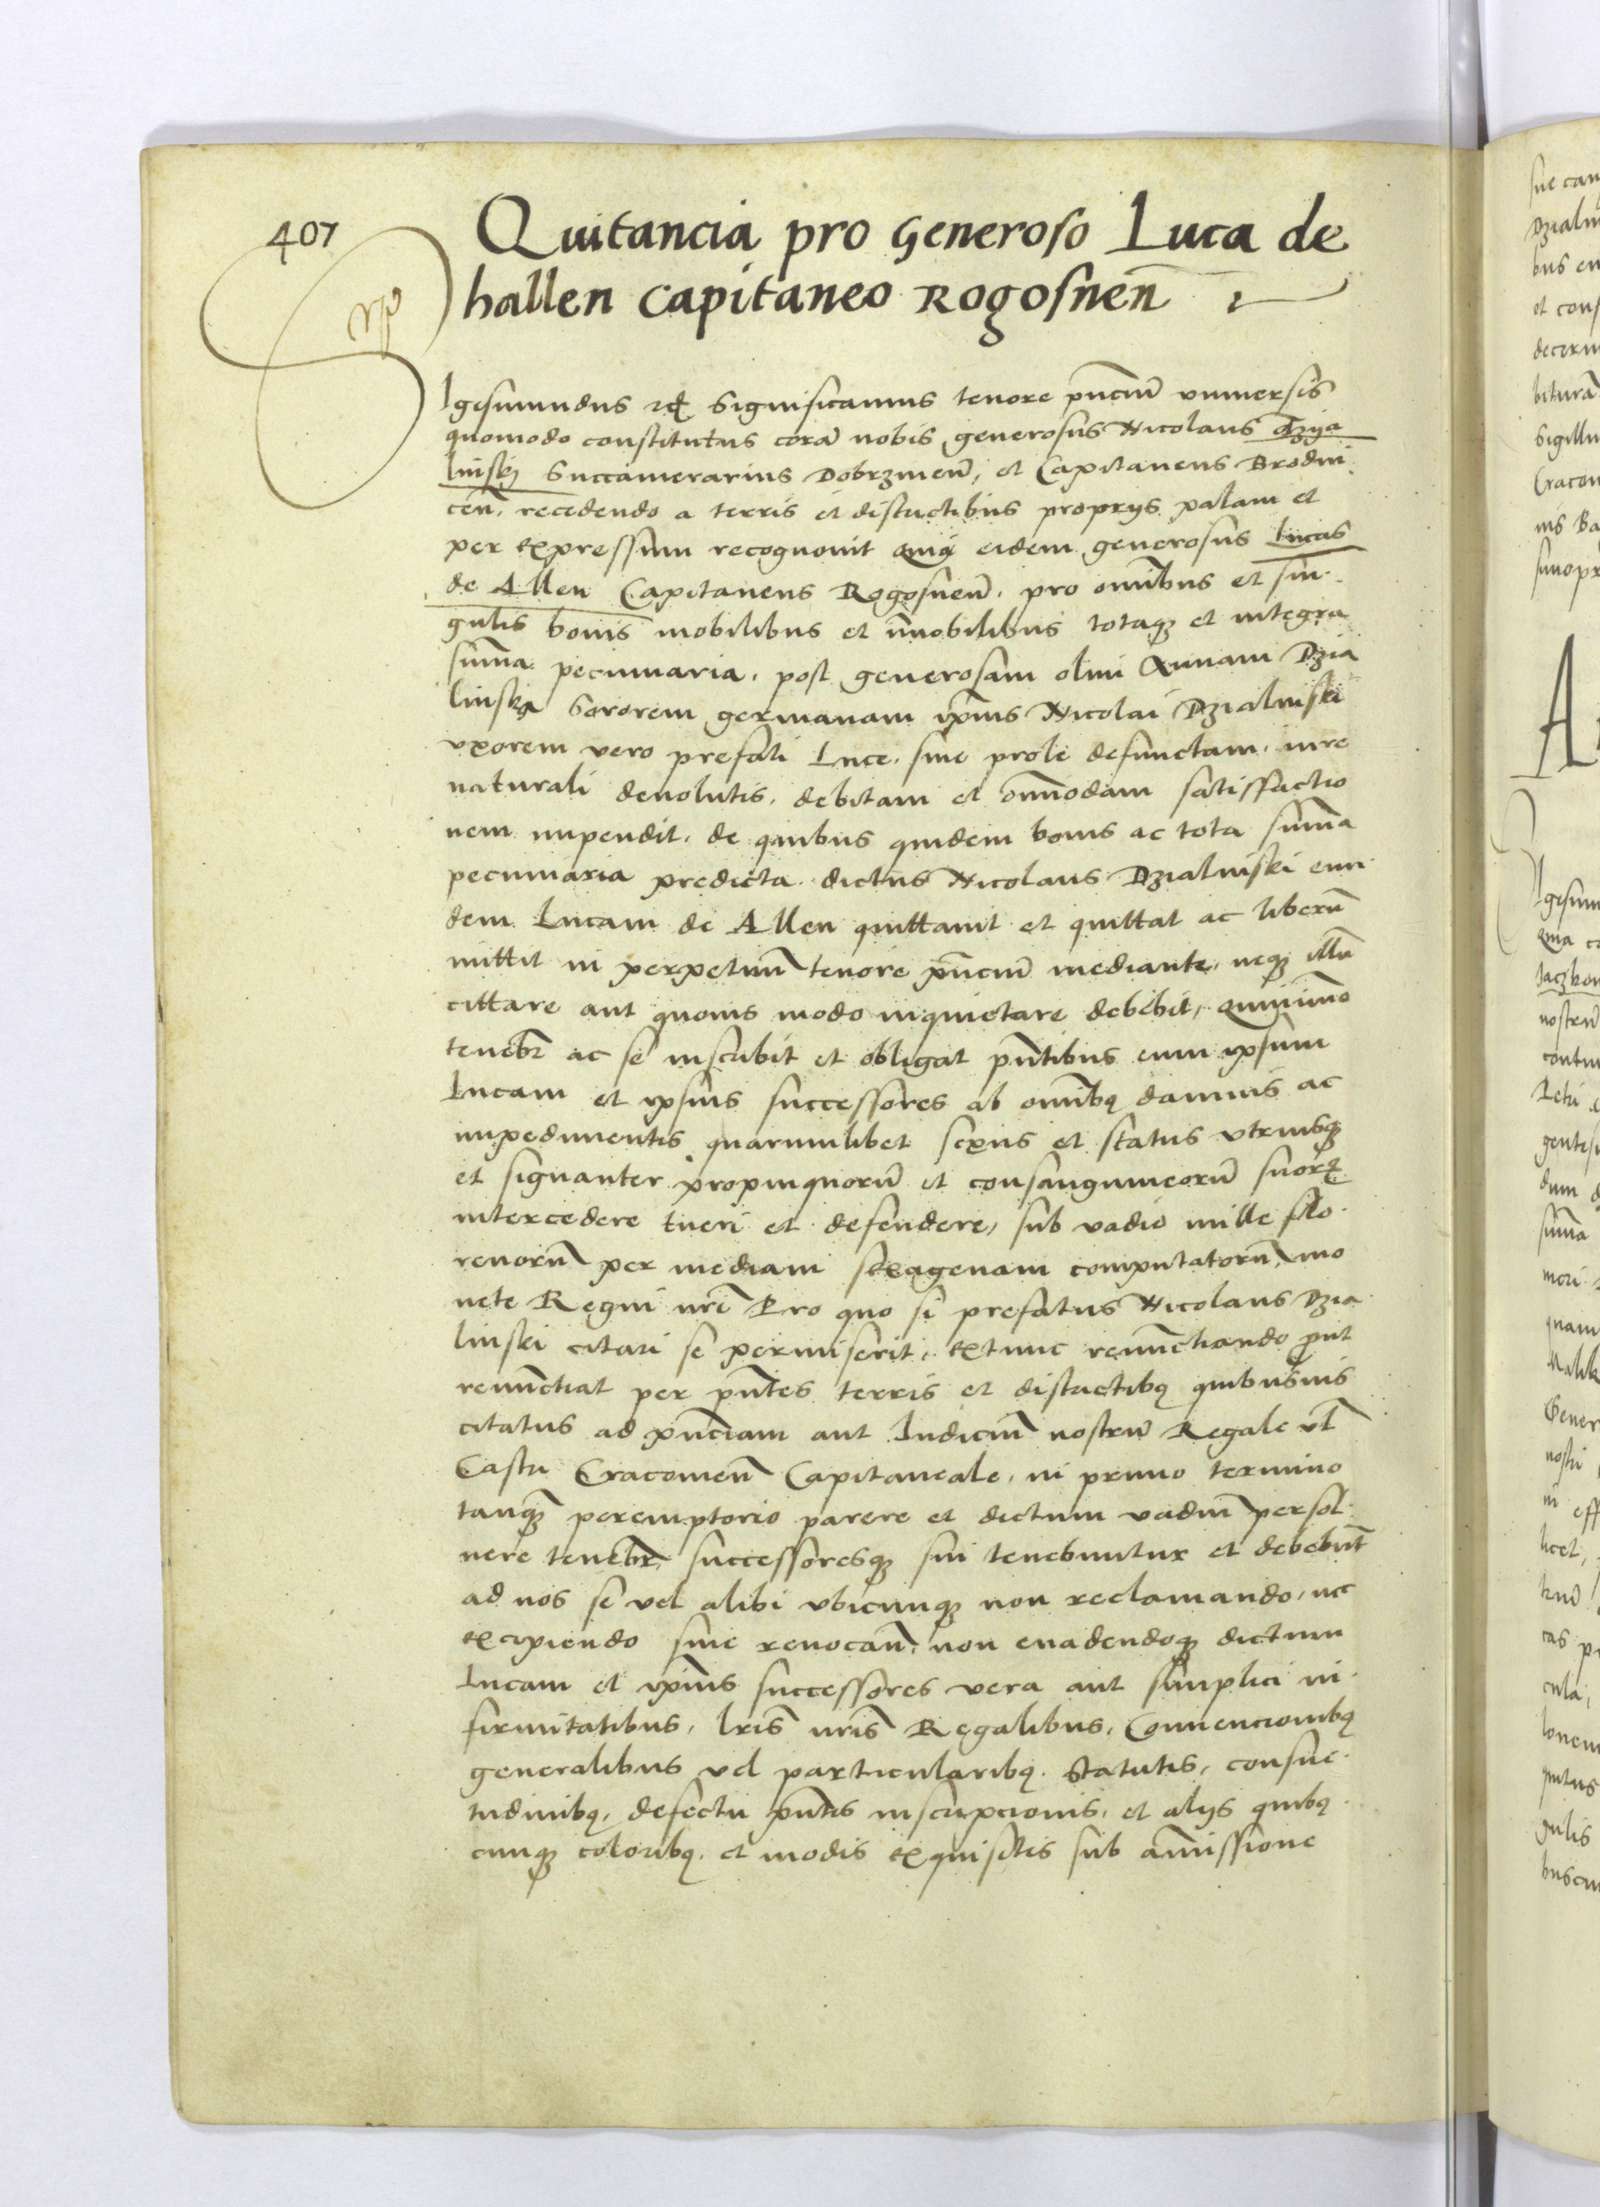 407
Quitancia pro Generoso Luca de
hallen Capitaneo Rogosnen̄
Igismundus etc̄ Significamus tenore pn̄ciūm vniuersis
quomodo constitutus corā nobis generosus Nicolaus Dzija
linskij Succamerarius Dobrzinen̄, et Capitaneus Brodni
cen̄, recedendo a terris et districtibus proprijs palam et
per expressum recognouit quia eidem generosus Lucas
de Allen Capitaneus Rogosnen̄. pro omnibus et sin
gulis bonis mobilibus et īmobilibus totaqȝ et integra
sum̄a pecuniaria, post generosam olim Annam Dzia
linska Sororem germanam ipius Nicolai Dzialinski
vxorem vero prefati Luce, sine prole defunctam, iure
naturali deuolutis, debitam et om̄imodam satisfactio
nem impendit, de quibus quidem bonis ac tota sum̄a
pecuniaria predicta dictus Nicolaus Dzialinski eun
dem Lucam de Allen quittauit et quittat ac liberū
mittit in perpetuum tenore pn̄ciūm mediante, neqȝ illū
cittare aut quouis modo inquietare debebit, quinimo
tenebr̄ ac se inscribit et obligat pn̄tibus eum ipsum
Lucam et ipsius successores ab omnibqȝ damnis ac
impedimentis quarumlibet sexus et status vtriusqȝ
et signanter propinquorū et consanguineorū suorꝝ
intercedere tueri et defendere, sub vadio mille flo
renorū per mediam sexagenam computatorū, mo
nete Regni nr̄i Pro quo si prefatus Nicolaus Dzia
linski citari se permiserit, extunc renunctiando prout
renunctiat per pn̄tes terris et districtibqȝ quibusuis
citatus ad pn̄ciam aut Iudiciū nostrū Regale vl̄
Castri Cracouien̄ Capitaneale, in primo termino
tanqȝ peremptorio parere et dictum vadiū persol
uere tenebr̄ successoresqȝ sui tenebuntur et debebunt
ad nos se vel alibi vbicunqȝ non reclamando, nec
excipiendo siue reuocan̄, non euadendoqȝ dictum
Lucam et ipius successores vera aut simplici in
firmitatibus, lr̄is nr̄is Regalibus, Conuencionibqȝ
generalibus vel particularibqȝ Statutis, consue
tudinibqȝ, defectu pn̄tis inscripcionis, et alijs quibqȝ
cunqȝ coloribqȝ et modis exquisitis sub amissione